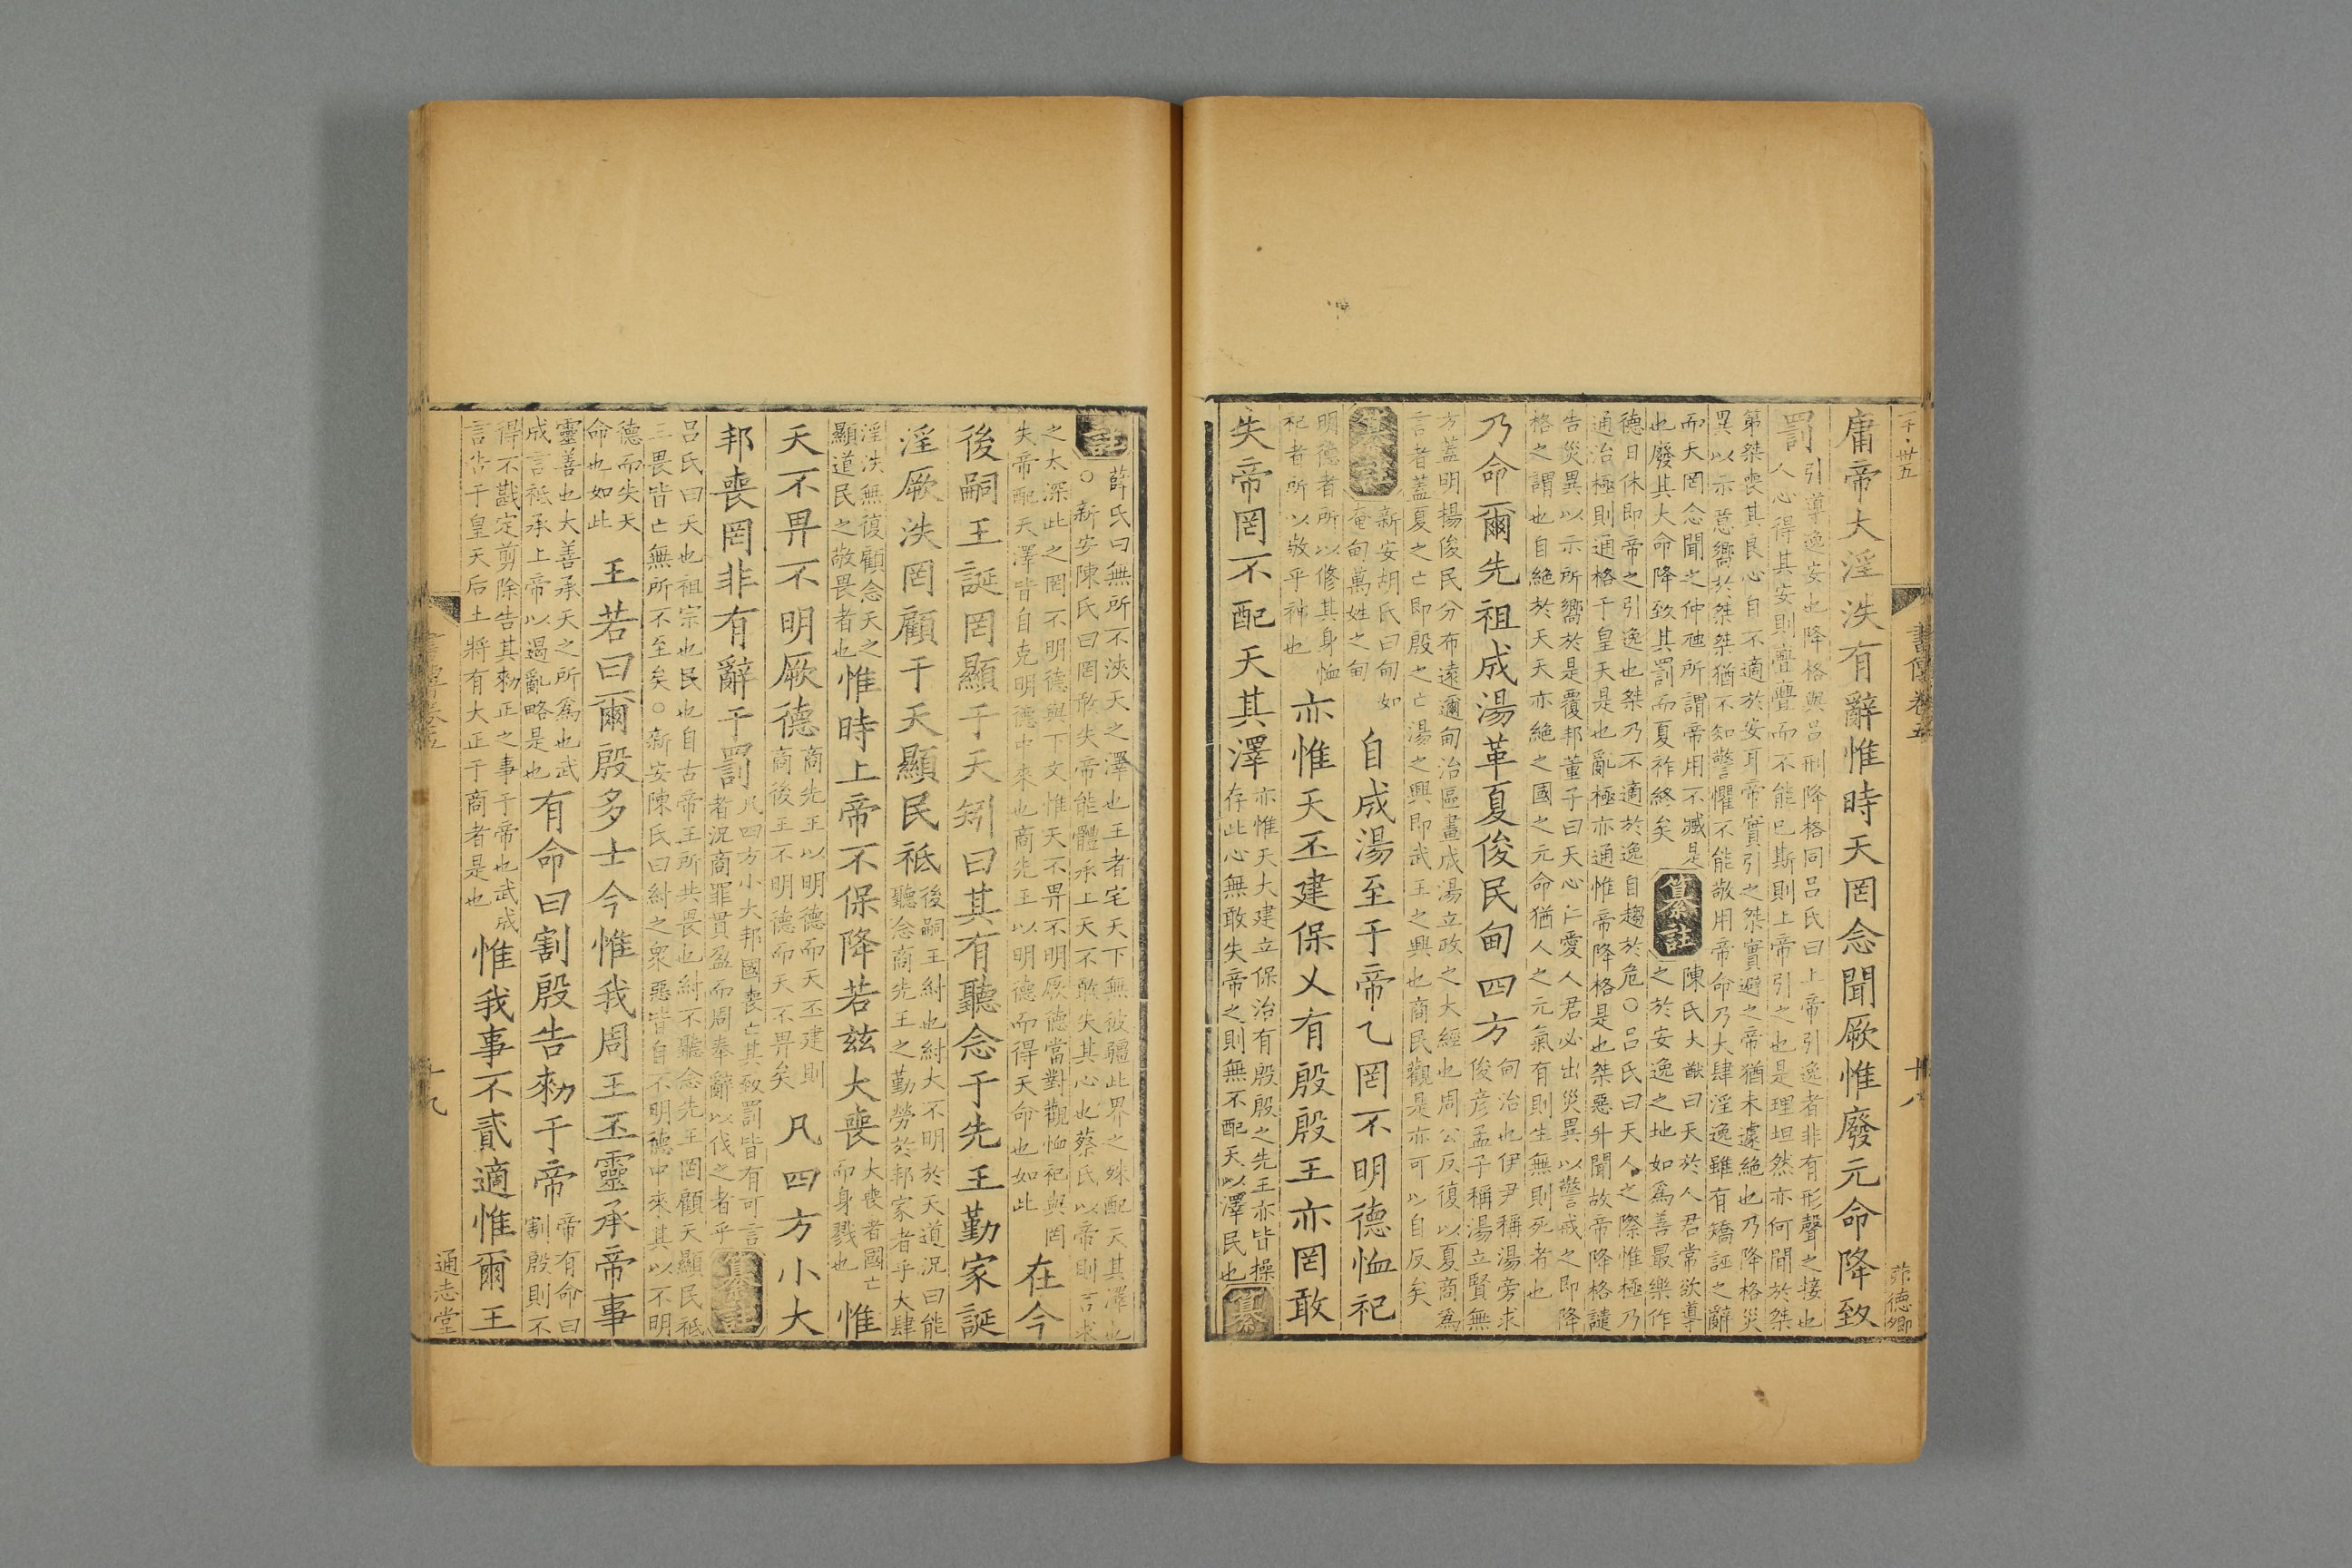 一千·卅五
書傳卷五
十八
茆德卿
庸帝大淫泆有辭惟時天罔念聞厥惟廢元命降致
罰
引導逸安也降格與呂刑降格同呂氏曰上帝引逸者非有形聲之接也
人心得其安則亹亹而不能已斯則上帝引之也是理坦然亦何間於桀
第桀喪其良心自不適於安耳帝實引之桀實避之帝猶未遽絶也乃降格災
異以示意嚮於桀桀猶不知警懼不能敬用帝命乃大肆淫逸雖有矯誣之辭
而天罔念聞之仲虺所謂帝用不臧是
也廢其大命降致其罰而夏祚終矣
纂註
陳氏大猷曰天於人君常欲導
之於安逸之地如爲善最樂作
德日休即帝之引逸也桀乃不適於逸自趨於危○呂氏曰天人之際惟極乃
通治極則通格于皇天是也亂極亦通惟帝降格是也桀惡升聞故帝降格譴
告災異以示所嚮於是覆邦董子曰天心仁愛人君必出災異以警戒之即降
格之謂也自絶於天天亦絶之國之元命猶人之元氣有則生無則死者也
乃命爾先祖成湯革夏俊民甸四方
甸治也伊尹稱湯旁求
俊彦孟子稱湯立賢無
方蓋明揚俊民分布遠邇甸治區畫成湯立政之大經也周公反復以夏商爲
言者蓋夏之亡即殷之亡湯之興即武王之興也商民觀是亦可以自反矣
纂註
新安胡氏曰甸如
奄甸萬姓之甸
自成湯至于帝乙罔不明德恤祀
明德者所以修其身恤
祀者所以敬乎神也
亦惟天丕建保乂有殷殷王亦罔敢
失帝罔不配天其澤
亦惟天大建立保治有殷殷之先王亦皆操
存此心無敢失帝之則無不配天以澤民也
纂
註
薛氏曰無所不浹天之澤也王者宅天下無彼疆此界之殊配天其澤也
○新安陳氏曰罔敢失帝能體承上天不敢失其心也蔡氏以帝則言求
之太深此之罔不明德與下文惟天不畀不明厥德當對觀恤祀與罔
失帝配天澤皆自克明德中來也商先王以明德而得天命也如此
在今
後嗣王誕罔顯于天矧曰其有聽念于先王勤家誕
淫厥泆罔顧于天顯民祗
後嗣王紂也紂大不明於天道況曰能
聽念商先王之勤勞於邦家者乎大肆
淫泆無復顧念天之
顯道民之敬畏者也
惟時上帝不保降若兹大喪
大喪者國亡
而身戮也
惟
天不畀不明厥德
商先王以明德而天丕建則
商後王不明德而天不畀矣
凡四方小大
邦喪罔非有辭于罰
凡四方小大邦國喪亡其致罰皆有可言
者況商罪貫盈而周奉辭以伐之者乎
纂註
呂氏曰天也祖宗也民也自古帝王所共畏也紂不聽念先王罔顧天顯民祗
三畏皆亡無所不至矣○新安陳氏曰紂之衆惡皆自不明德中來其以不明
德而失天
命也如此
王若曰爾殷多士今惟我周王丕靈承帝事
靈善也大善承天之所爲也武
成言祗承上帝以遏亂略是也
有命曰割殷告勑于帝
帝有命曰
割殷則不
得不戡定剪除告其勑正之事于帝也武成
言告于皇天后土將有大正于商者是也
惟我事不貳適惟爾王
十九
通志堂